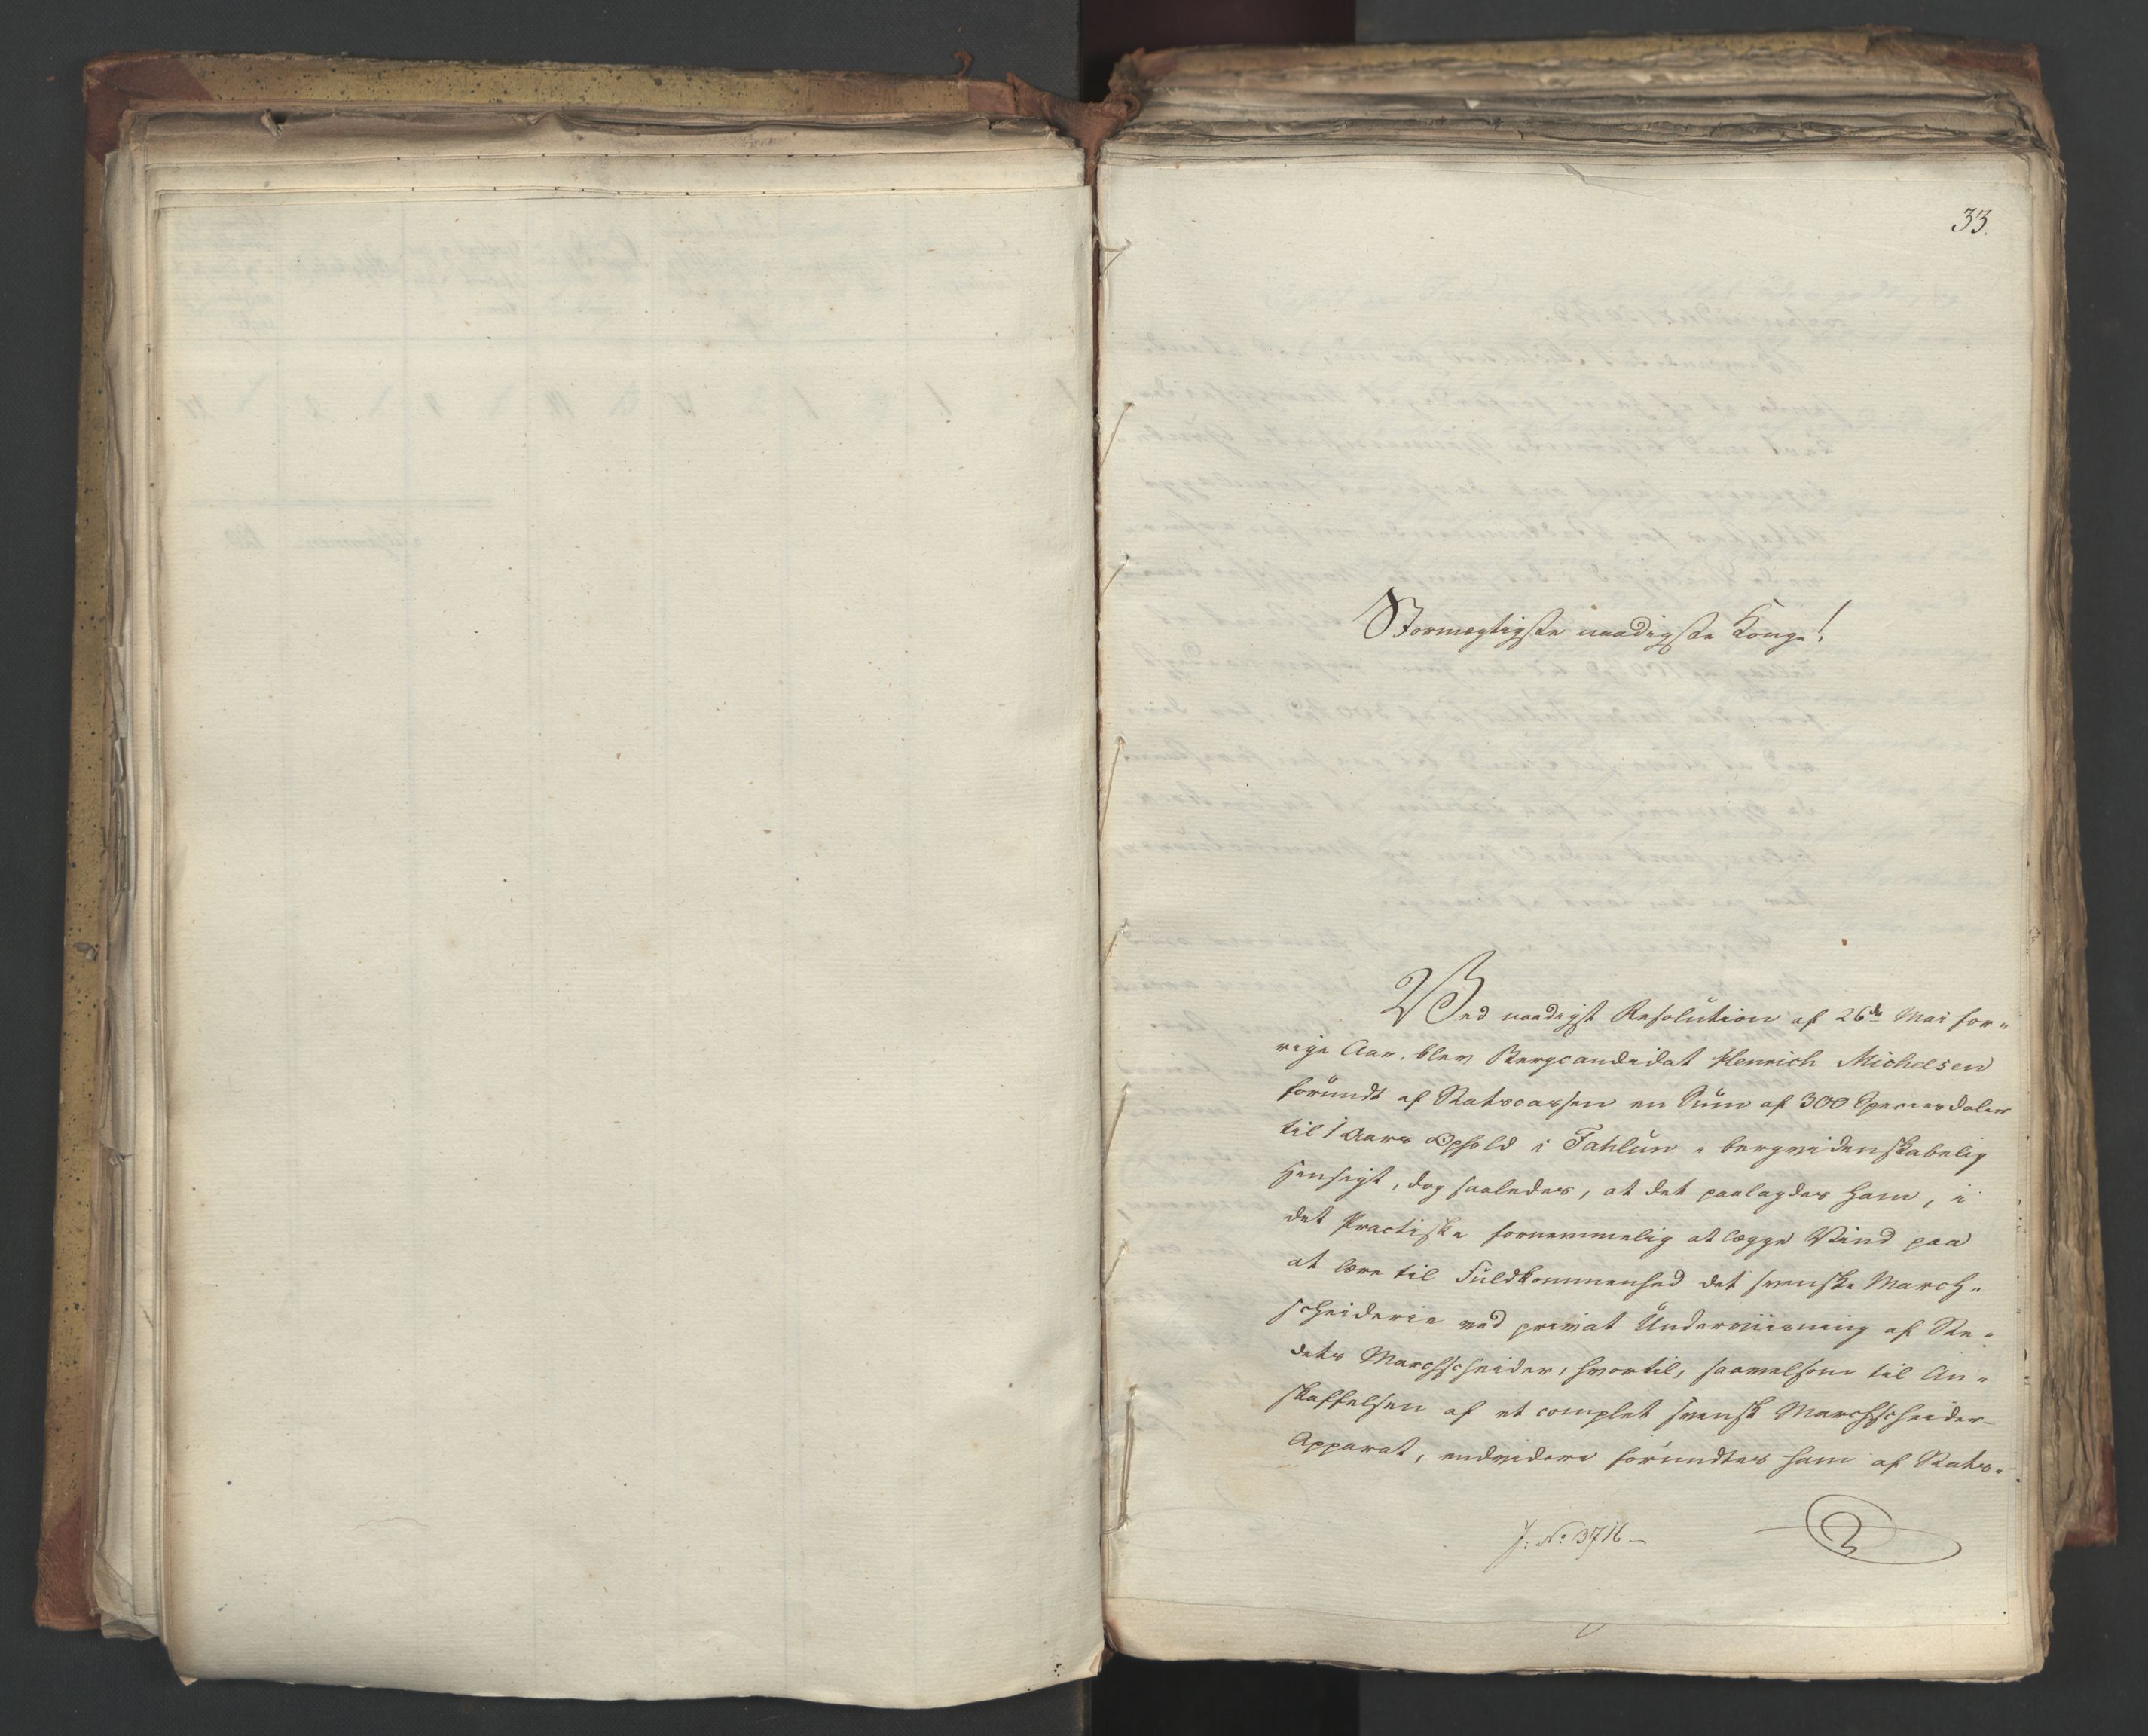 33.
Stormægtigste naadigste Konge!
Ved naadigst Resolution af 26de Mai for-
rige Aar, blev Bergcandidat Henrich Michelsen
forundt af Statscassen en Sum af 300 Speciesdaler
til 1 Aars Ophold i Fahlun i bergvidenskabelig
Hensigt, dog saaledes, at det paalagdes ham, i
det Practiske fornemmelig at lægge Vind paa
at lære til Fuldkommenhed det svenske March-
scheiderie ved privat Underviisning af Ste-
dets Marchscheider, hvortil, saavelsom til An-
skaffelsen af et complet svensk Marchscheider-
Apparat, endvidere forundtes ham af Stats-
J: No 3716-